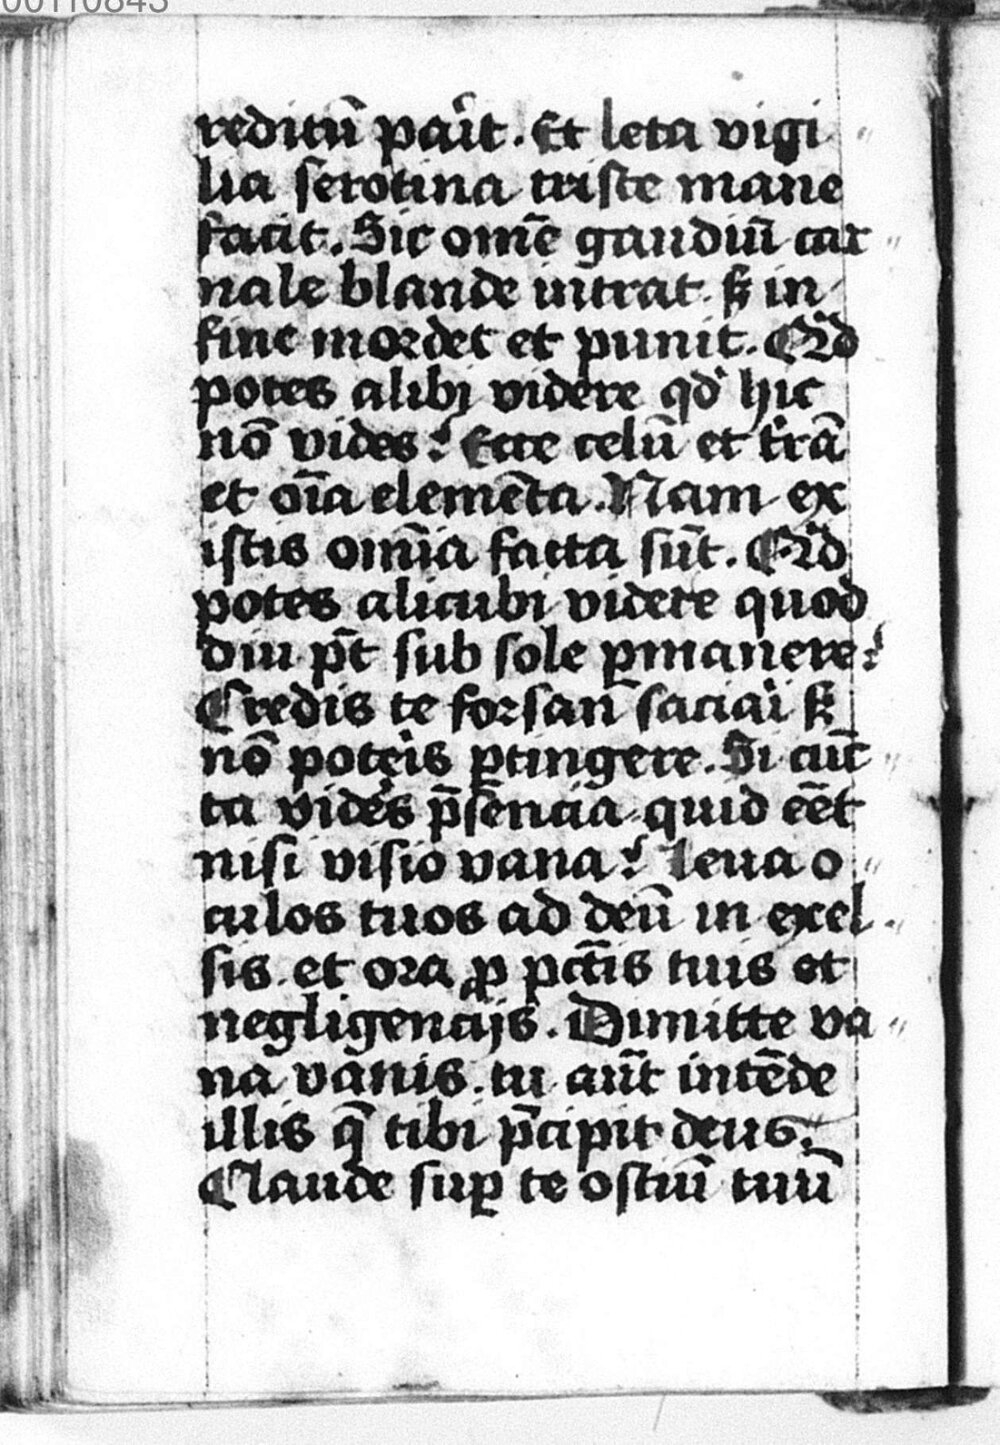 00110843
reditū parit. Et leta vigi
lia serotina triste mane
facit. Sic om̄e gaudiū car
nale blande intrat. sꝫ in
fine mordet et punit. Qͥd
potes alibi videre qd' hic
nō vides? Ecce celū et t'rā
et oīa elemēta. Nam ex
istis omīa facta sūt. Qͥd
potes alicubi videre quod
diu pōt sub sole ꝑmanere?
Credis te forsan saciari sꝫ
nō poteris ꝑtingere. Si cūc
ta videres p̄sencia quid eēt
nisi visio vana? Leua o
culos tuos ad deū in excel
sis. et ora ꝓ pctīs tuis et
negligencijs. Dimitte va
na vanis. tu aūt intēde
illis q̄ tibi p̄cipit deus.
Claude suꝑ te ostiū tuū